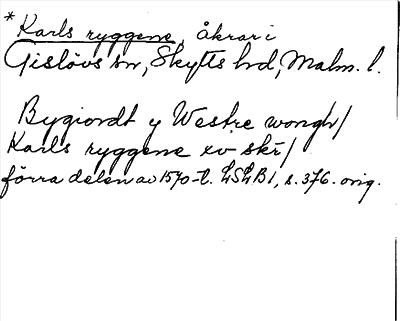 *Karls ryggene, åkrar i
Gislövs sn, Skytts hd, Malm. l.
Bygiordt y Westre wongh/
Karls ryggene xv skr/
förra delen av 1570-t. LSLB1, s. 376. orig.